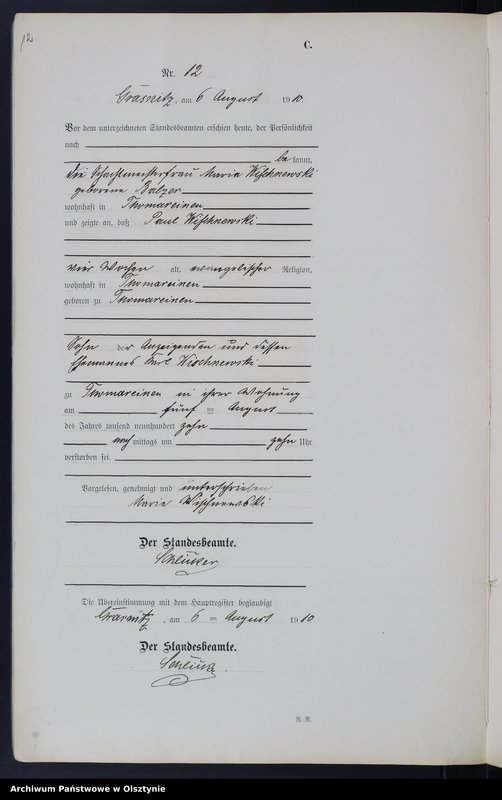 12
C.
Nr. 12
Grasnitz, am 6 August 1910.
Vor dem unterzeichneten Standesbeamten erschien heute, der Persönlichkeit
nach
be kannt,
die Schachtmeisterfrau Maria Wischnewski
geborene Balzer
wohnhaft in Thomareinen
und zeigte an, daß Paul Wischnewski
vier Wochen alt, evangelischer Religion,
wohnhaft in Thomareinen
geboren zu Thomareinen
Sohn der Anzeigenden und dessen
Ehemannes Karl Wischnewski
zu Thomareinen in ihrer Wohnung
am fünf ten August
des Jahres tausend neunhundert zehn
nach mittags um zehn Uhr
verstorben sei.
Vorgelesen, genehmigt und unterschrieben
Marie Wischnewski
Der Standesbeamte.
Die Übereinstimmung mit dem Hauptregister beglaubigt
Grasnitz, am 6 ten August 1910
Der Standesbeamte.
N.-R.
Archiwum Państwowe w Olsztynie